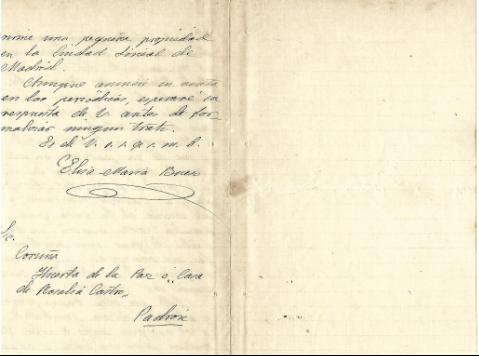 me una pequeña propiedad
en la Ciudad Lineal de
Madrid.
Aunque anuncié su venta
en los periódicos, esperaré su
respuesta de V. antes de for-
malizar ningún trato.
Es de V. s. s. q. s. m. b.
Elvira María
Coruña
Huerta de la Paz ó Casa
de Rosalía Castro,
Padrón